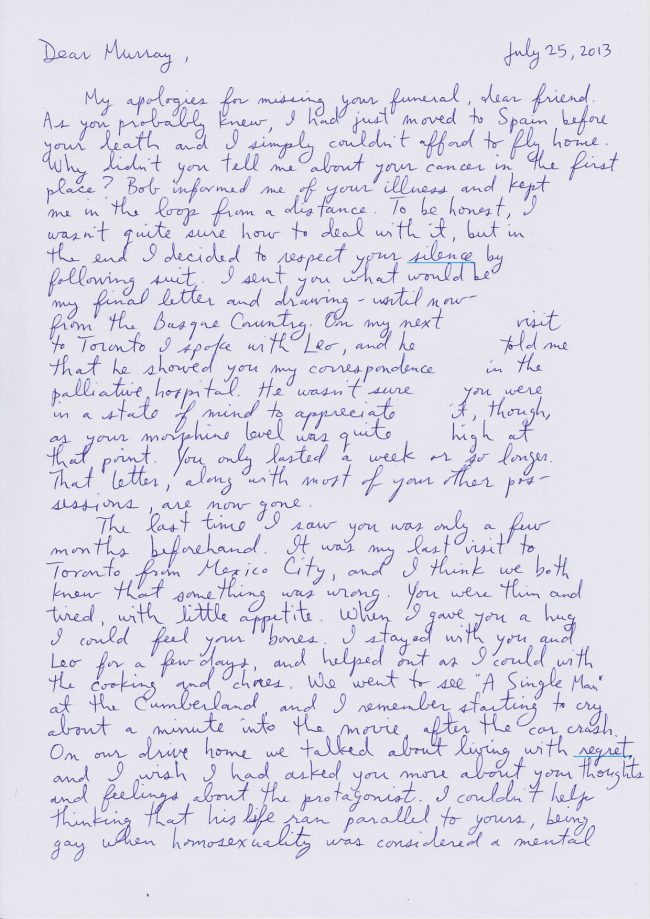 Dear Murray,                                July 25, 2013
My apologies for missing your funeral, dear friend.
As you probably knew, I had just moved to Spain before
your death and I simply couldn't afford to fly home.
Why didn't you tell me about your cancer in the first
place? Bob informed me of your illness and kept
me in the loop from a distance. To be honest, I
wasn't quite sure how to deal with it, but in
the end I decided to respect your silence by
following suit. I sent you what would be
my final letter and drawing - until now -
from the Basque Country. On my next visit
to Toronto I spoke with Leo, and he told me
that he showed you my correspondence in the
palliative hospital. He wasn't sure you were
in a state of mind to appreciate it, though,
as your morphine level was quite high at
that point. You only lasted a week or so longer.
That letter, along with most of your other pos-
sessions, are now gone.
The last time I saw you was only a few
months beforehand. It was my last visit to
Toronto from Mexico City, and I think we both
knew that something was wrong. You were thin and
tired, with little appetite. When I gave you a hug
I could feel your bones. I stayed with you and
Leo for a few days, and helped out as I could with
the cooking and chores. We went to see "A Single Man"
at the Cumberland, and I remember starting to cry
about a minute into the movie, after the car crash.
On our drive home we talked about living with regret,
and I wish I had asked you more about your thoughts
and feelings about the protagonist. I couldn't help
thinking that his life ran parallel to yours, being
gay when homosexuality was considered a mental